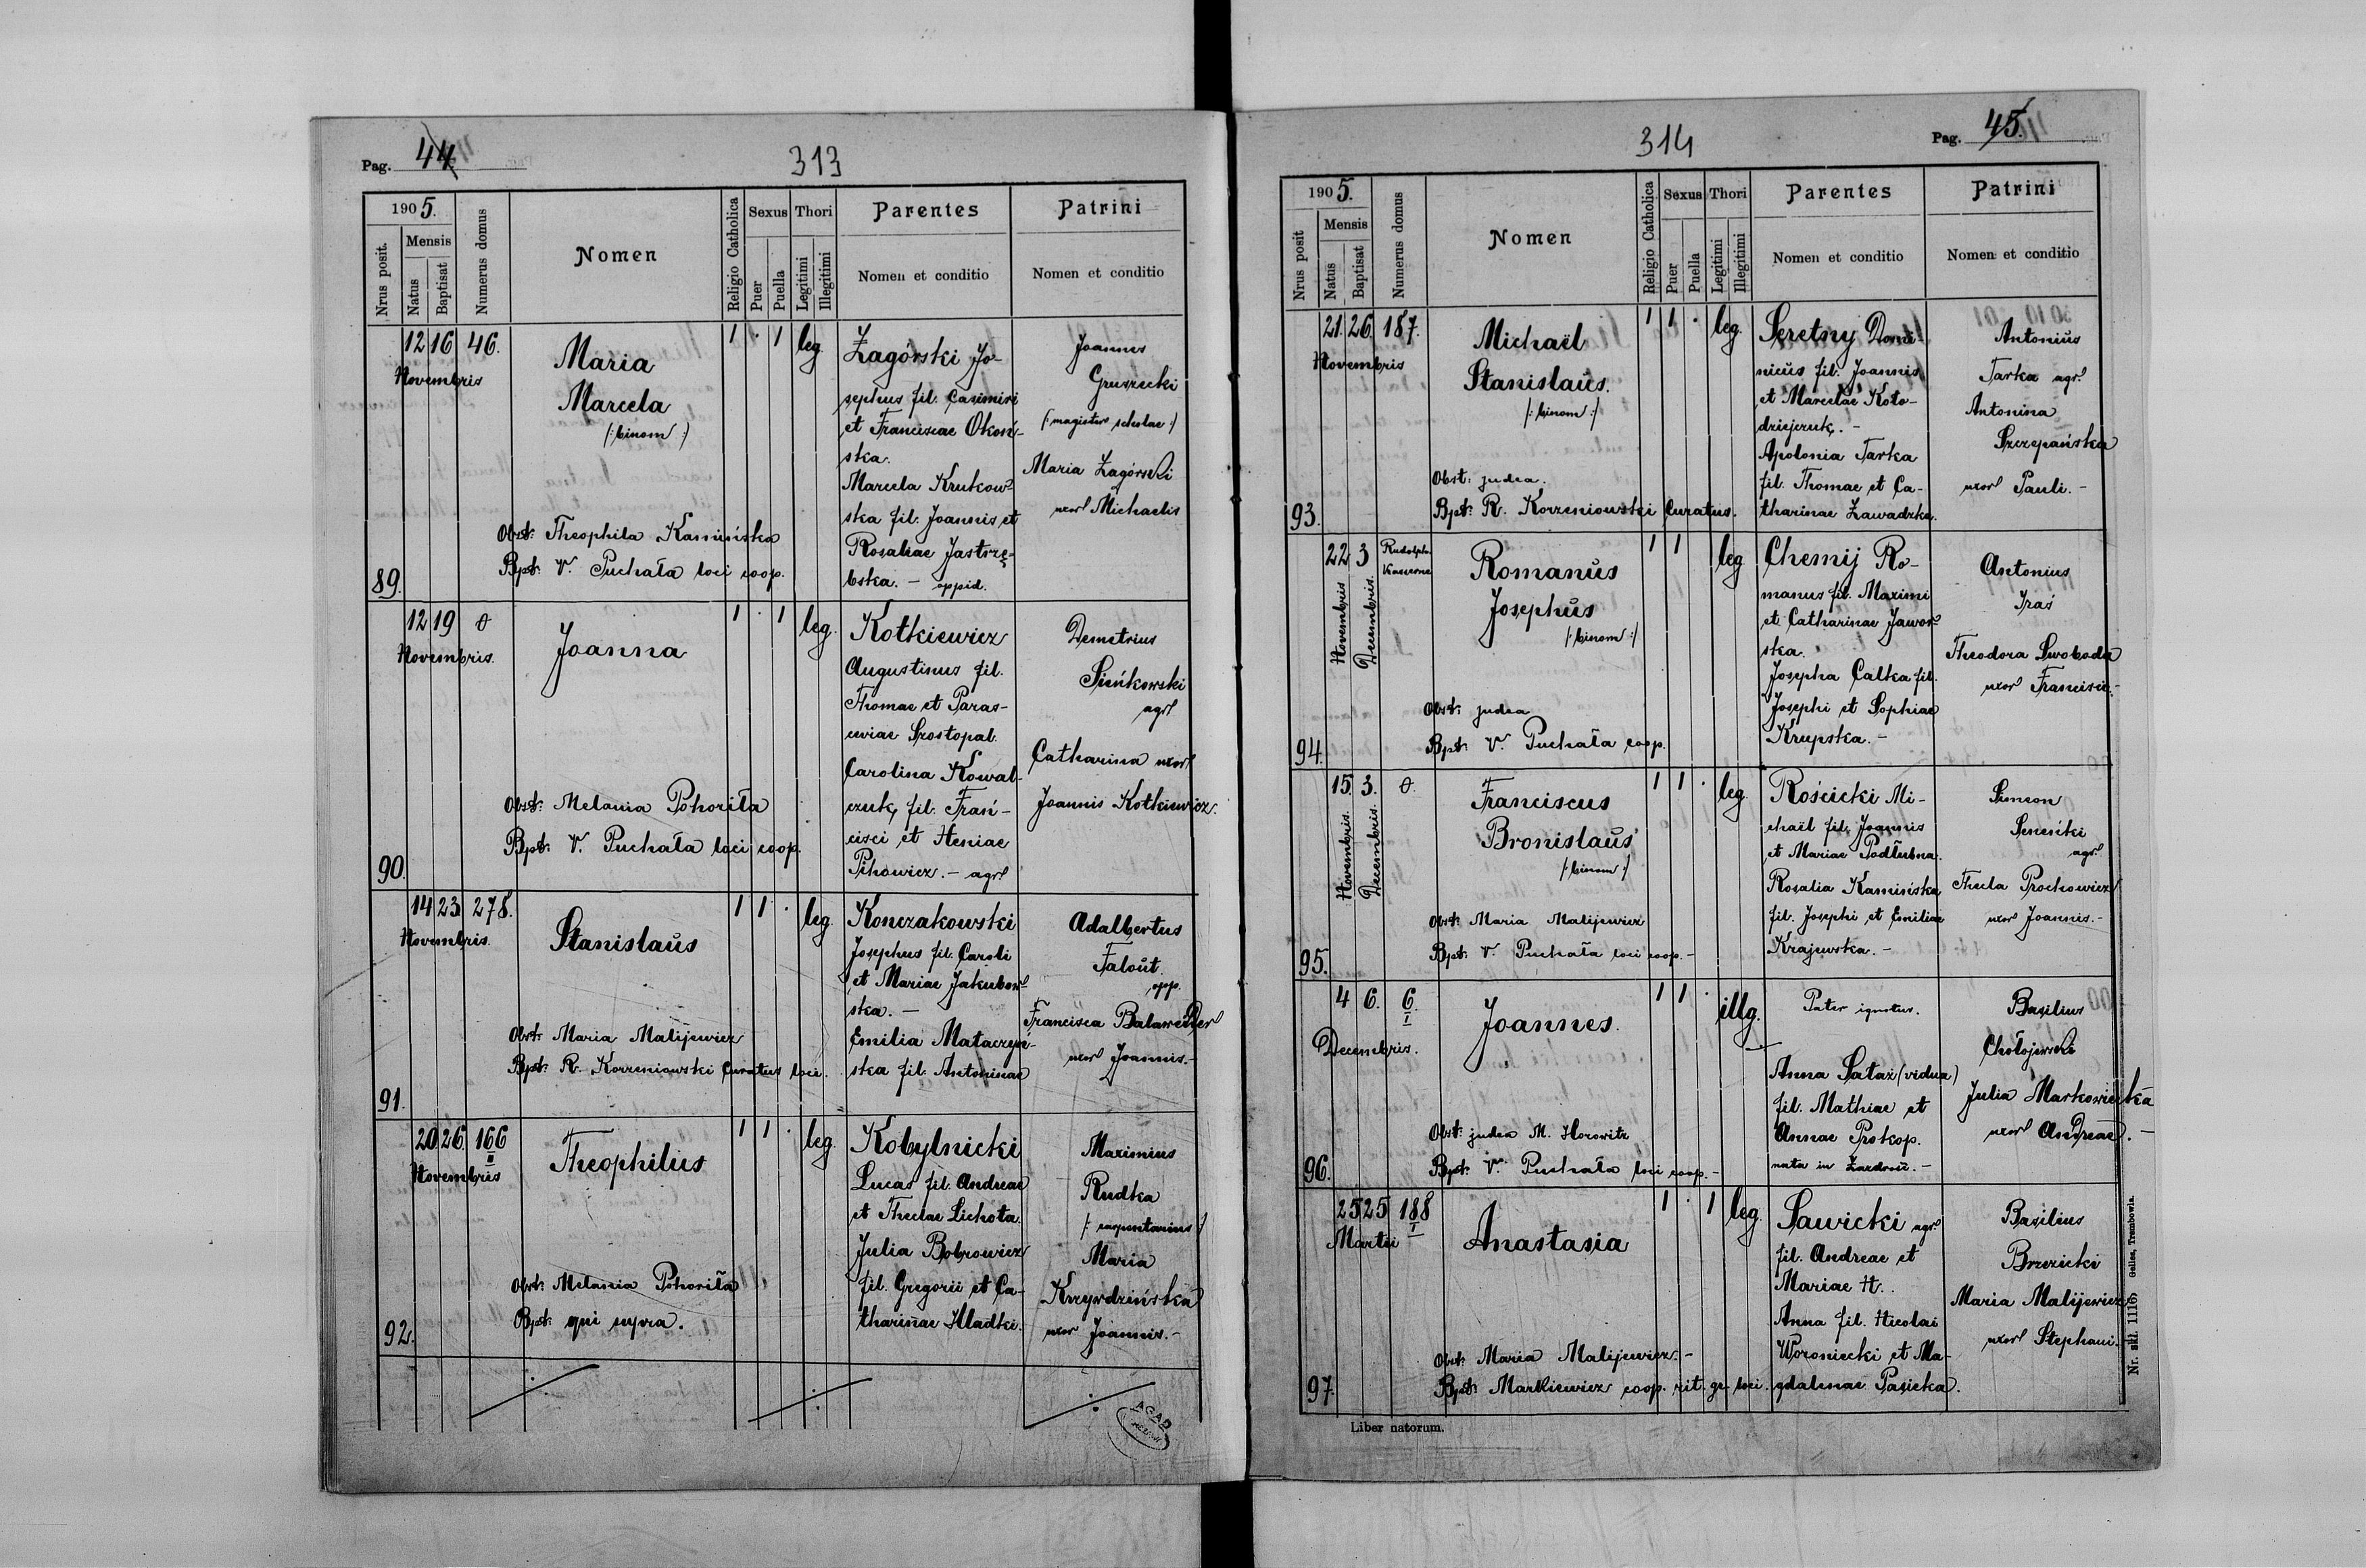 Pag. 44
313
1905.
Nrus posit.
Mensis
Natus
Baptisat
Numerus domus
Nomen
Religio Catholica
Sexus
Puer
Puella
Thori
Legitimi
Illegitimi
Parentes
Nomen et conditio
Patrini
Nomen et conditio
89.
12 16 46.
Novembris
Maria
Marcela
/: binom :/
Obst: Theophila Kamińska
Bpt: V. Puchała loci coop.
1 . 1 leg.
Zagórski Jo-
sephus fil. Casimiri
et Franciscae Okoń-
ska.
Marcela Krutkow-
ska fil. Joannis et
Rosaliae Jastrzę-
bska. - oppid.
Joannes
Gruszecki
(: magister scholae :)
Maria Zagórski
uxor Michaelis
90.
12 19 0
Novembris.
Joanna
Obst: Melania Pohoriła
Bpt: V. Puchała loci coop.
1 . 1 leg.
Kotkiewicz
Augustinus fil.
Thomae et Paras-
ceviae Szostopal.
Carolina Kowal-
czuk, fil. Fran-
cisci et Heniae
Pihowicz. - agr.
Demetrius
Sieńkowski
agr.
Catharina uxor
Joannis Kotkiewicz.
91.
14 23 278.
Novembris.
Stanislaus
Obst: Maria Malijewicz
Bpt: R. Korzeniowski Curatus loci.
1 1 . leg.
Konczakowski
Josephus fil. Caroli
et Mariae Jakubow-
ska. -
Emilia Mataczyń-
ska fil. Antoninae
Adalbertus
Falout.
opp.
Francisca Balaweder
uxor Joannis. -
92.
20 26 166
II
Novembris
Theophilus
Obst: Melania Pohoriła
Bpt: qui supra.
1 1 . leg.
Kobylnicki
Lucas fil. Andreae
et Theclae Lichota.
Julia Bobrowicz
fil. Gregorii et Ca-
tharinae Hladki.
Maximius
Rudka
/: carpentarius :/
Maria
Krzywdzińska
uxor Joannis. -
AGAD
314
Pag. 45.
1905.
Nrus posit
Mensis
Natus
Baptisat
Numerus domus
Nomen
Religio Catholica
Sexus
Puer
Puella
Thori
Legitimi
Illegitimi
Parentes
Nomen et conditio
Patrini
Nomen et conditio
93.
21. 26 187.
Novembris
Michaël
Stanislaus.
/: binom :/
Obst: judea.
Bpt: R. Korzeniowski Curatus.
1 1 . leg.
Seretny Domi-
nicus fil. Joannis
et Marcelae Koło-
dziejczuk. -
Apolonia Tarka
fil. Thomae et Ca-
tharinae Zawadzka.
Antonius
Tarka agr.
Antonina
Szczepańska
uxor Pauli. -
94.
22 3
Novembris
Decembris.
Romanus
Josephus
/: binom :/
Obst: judea
Bpt: V. Puchała coop.
1 1 leg
Chemij Ro-
manus fil. Maximi
et Catharinae Jawor-
ska.
Josepha Całka fil.
Josephi et Sophiae
Krupska. -
Antonius
Iraś
Theodora Swoboda
uxor Francisci. -
95.
15 3. 0.
Novembris.
Decembris.
Franciscus
Bronislaus
/: binom :/
Obst: Maria Malijewicz
Bpt: V. Puchała loci coop. -
1 1 . leg.
Rościcki Mi-
chaël fil. Joannis
et Mariae Podłubna.
Rosalia Kamińska
fil. Josephi et Emiliae
Krajewska. -
Simeon
Seneńki
agr.
Thecla Prochowicz
uxor Joannis. -
96.
4 6. 6.
I
Decembris.
Joannes.
Obst: judea M. Horowitz
Bpt: V. Puchała loci coop. -
1 1 . illg.
Pater ignotus.
Anna Sataz (vidua)
fil. Mathiae et
Annae Prokop.
nata in Zazdroś. -
Basilius
Chołojewski
Julia Markowiecka
uxor Andreae. -
97.
25 25 188
I
Martii
Anastasia
Obst: Maria Malijewicz. -
Bpt: Markiewicz coop. rit. gr. loci.
1 . 1 leg.
Sawicki agr.
fil. Andreae et
Mariae H.
Anna fil. Nicolai
Woroniecki et Ma-
gdalenae Pasieka.
Basilius
Brzezicki
Maria Malijewicz
uxor Stephani.
Liber natorum.
Nr. skł. 1116. Gelles, Trembowla.